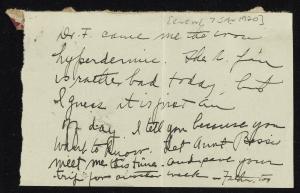 [7 Jan 1920]
Dr. F. came me the iron
hyperdermic. The h. pain
is rather bad today, but
I guess it is just an
off day. I tell you because you
want to know. Let Aunt Bessie
meet me this time and save your
trip for another week —